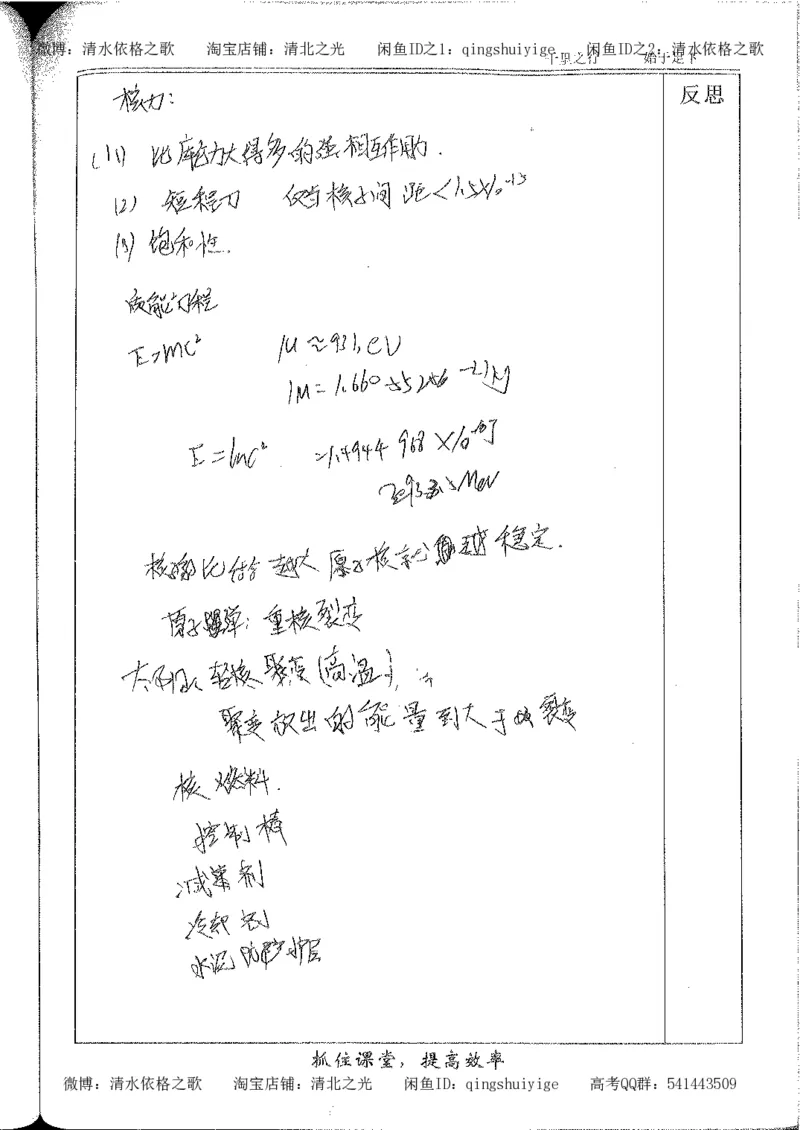 微博：清水依格之歌 淘宝店铺：清北之光 闲鱼ID之1：qingshuiyige 闲鱼ID之2：清水依格之歌
千里之行 始于足下
反思
核力：
(1) 比库仑力大得多的强相互作用力.
(2) 短程力 仅当核子间距<1.5×10⁻¹⁵
(3) 饱和性.
质能方程
E=mc² 1u≈931.
E=mc²
核的比结合 越大 原子核就 越稳定.
原子弹：重核裂变
轻核聚变(高温)
聚变放出的能量 大于 裂变
核燃料.
控制棒
减速剂
冷却剂
水泥防护层
抓住课堂，提高效率
微博：清水依格之歌 淘宝店铺：清北之光 闲鱼ID：qingshuiyige 高考QQ群：541443509